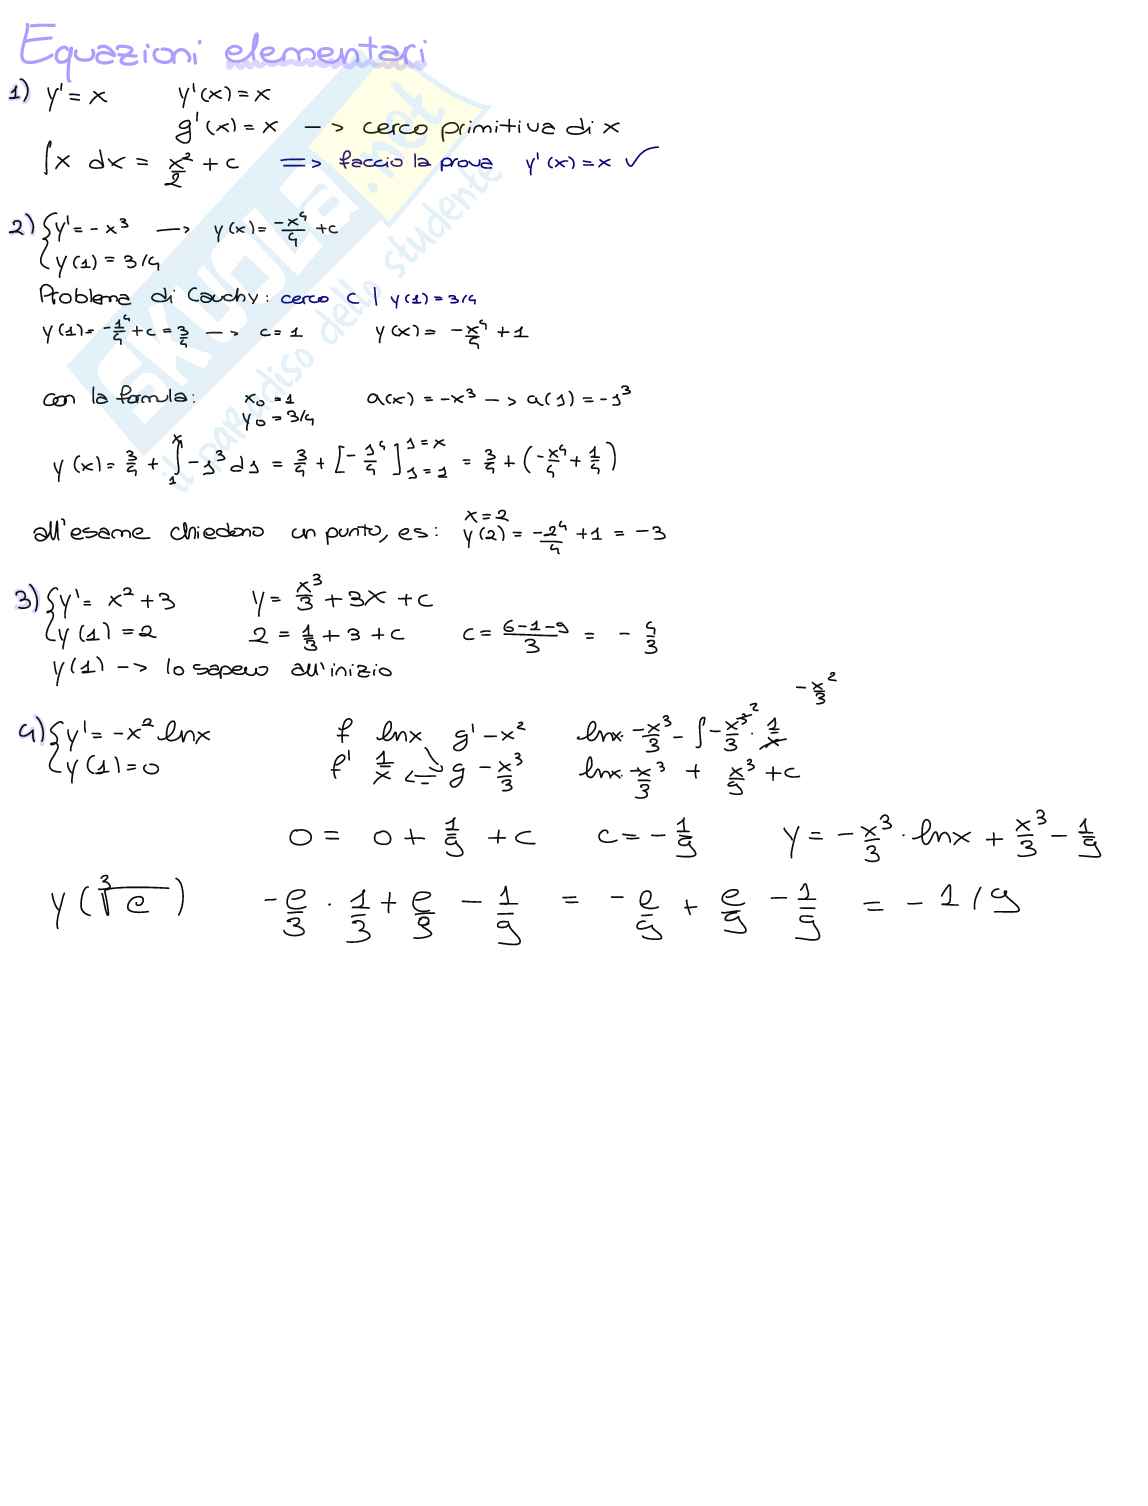 Equazioni elementari
1) y' = x y'(x) = x
g'(x) = x --> cerco primitiva di x
∫x dx = x²/2 + c ==> faccio la prova y'(x) = x ✓
2) {y' = -x³ --> y(x) = -x⁴/4 + c
y(1) = 3/4
Problema di Cauchy: cerco c | y(1) = 3/4
y(1) = -1⁴/4 + c = 3/4 --> c = 1 y(x) = -x⁴/4 + 1
con la formula: x₀ = 1 a(x) = -x³ --> a(s) = -s³
y₀ = 3/4
y(x) = 3/4 + ∫₁ˣ -s³ ds = 3/4 + [-s⁴/4]ₛ₌₁ˢ⁼ˣ = 3/4 + (-x⁴/4 + 1/4)
x = 2
all'esame chiedono un punto, es: y(2) = -2⁴/4 + 1 = -3
3) {y' = x² + 3 y = x³/3 + 3x + c
y(1) = 2 2 = 1/3 + 3 + c c = 6-1-9/3 = -4/3
y(1) --> lo sapevo all'inizio
-x²/3
4) {y' = -x² lnx f lnx g' -x² lnx · -x³/3 - ∫-x³/3 · 1/x
y(1) = 0 f' 1/x <-- g -x³/3 lnx · -x³/3 + x³/9 + c
0 = 0 + 1/9 + c c = -1/9 y = -x³/3 · lnx + x³/3 - 1/9
y(³√e) -e/3 · 1/3 + e/9 - 1/9 = -e/9 + e/9 - 1/9 = -1/9
SKUOLA.net
il paradiso dello studente